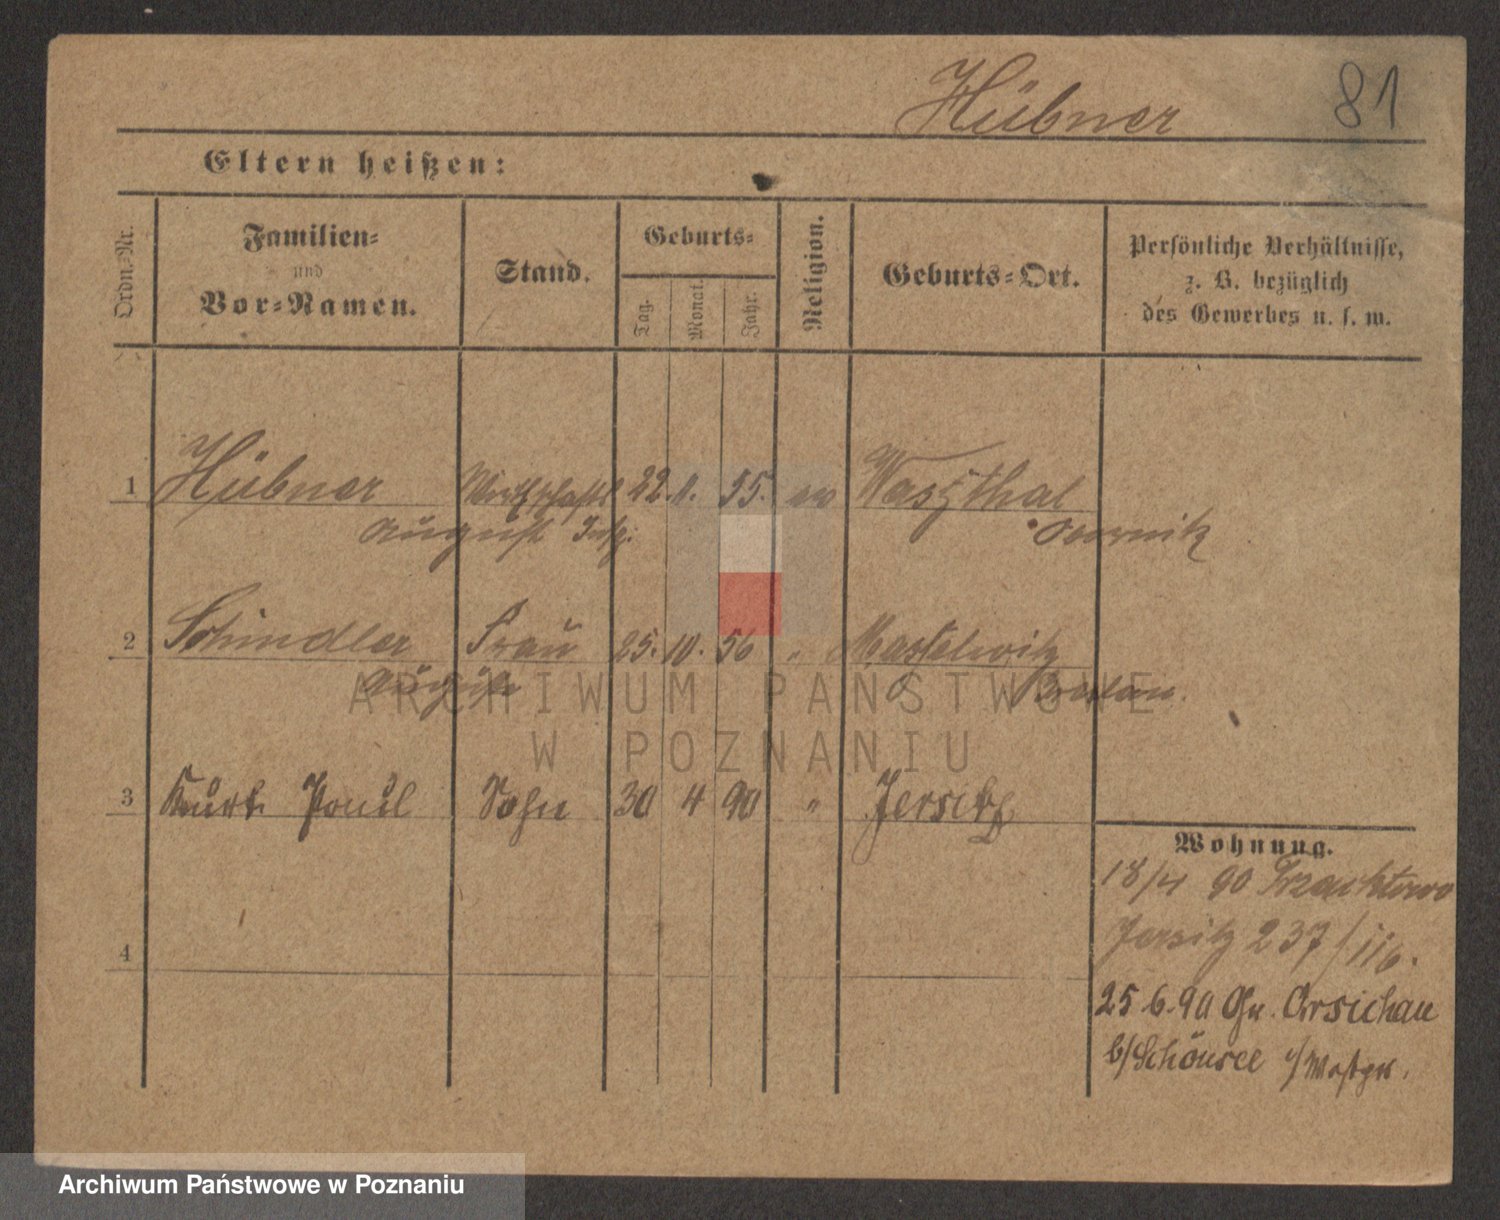 Hübner 81
Eltern heißen:
Ordn.-Nr.
Familien-
und
Vor-Namen.
Stand.
Geburts-
Tag.
Monat.
Jahr.
Religion.
Geburts-Ort.
Persönliche Verhältnisse,
z. B. bezüglich
des Gewerbes u. s. w.
1 Hübner Wirthschafts 22. 11. 55. ev
August Insp.
2 Schindler Frau 25. 10. 56 " Masselwitz
Auguste Breslau.
3 Kurt Paul Sohn 30 4 90 " Jersitz
4
Wohnung.
18/4 90
Jersitz 237/116.
25 6. 90 Orsichau
b/Schönsee i/Westpr.
ARCHIWUM PAŃSTWOWE
W POZNANIU
Archiwum Państwowe w Poznaniu